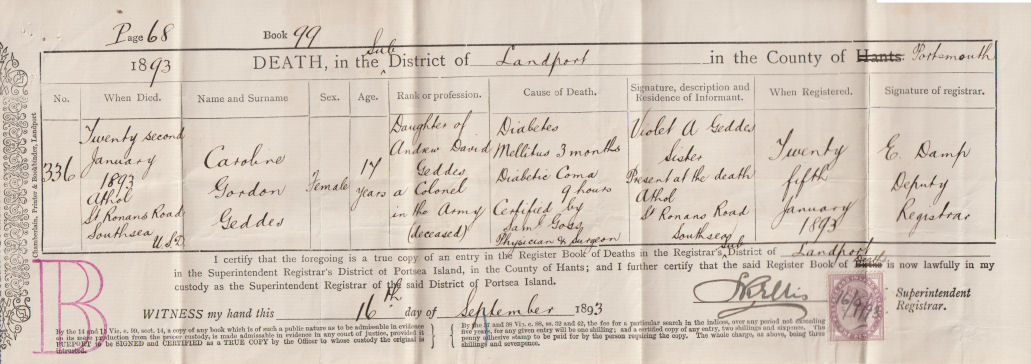 Page 68 Book 99
1893 DEATH, in the Sub District of Landport in the County of Hants. Portsmouth
No. When Died. Name and Surname Sex. Age. Rank or profession. Cause of Death. Signature, description and Residence of Informant. When Registered. Signature of registrar.
336
Twenty second
January
1893
Athol
St Ronans Road
Southsea
U.S.D.
Caroline
Gordon
Geddes
Female
17
years
Daughter of
Andrew David
Geddes
a Colonel
in the Army
(deceased)
Diabetes
Mellitus 3 months
Diabetic Coma
9 hours
Certified by
Saml Goss
Physician & Surgeon
Violet A Geddes
Sister
Present at the death
Athol
St Ronans Road
Southsea
Twenty
fifth
January
1893
E. Damp
Deputy
Registrar
Chamberlain, Printer & Bookbinder, Landport
I certify that the foregoing is a true copy of an entry in the Register Book of Deaths in the Registrar's Sub District of Landport
in the Superintendent Registrar's District of Portsea Island, in the County of Hants; and I further certify that the said Register Book of Births Deaths is now lawfully in my
custody as the Superintendent Registrar of the said District of Portsea Island.
WITNESS my hand this 16th day of September 1893
Superintendent
Registrar.
B
By the 14 and 15 Vic. c. 99, sect. 14, a copy of any book which is of such a public nature as to be admissible in evidence
on its mere production from the proper custody, is made admissible in evidence in any court of justice, provided it
PURPORT to be SIGNED and CERTIFIED as a TRUE COPY by the Officer to whose custody the original is
intrusted.
By the and 38 Vic. c. 88, ss. 32 and 42, the fee for a particular search in the indices, over any period not exceeding
five years, for any given entry will be one shilling; and a certified copy of any entry, two shillings and sixpence. The
penny adhesive stamp to be paid for by the person requiring the copy. The whole charge, as above, being three
shillings and sevenpence.